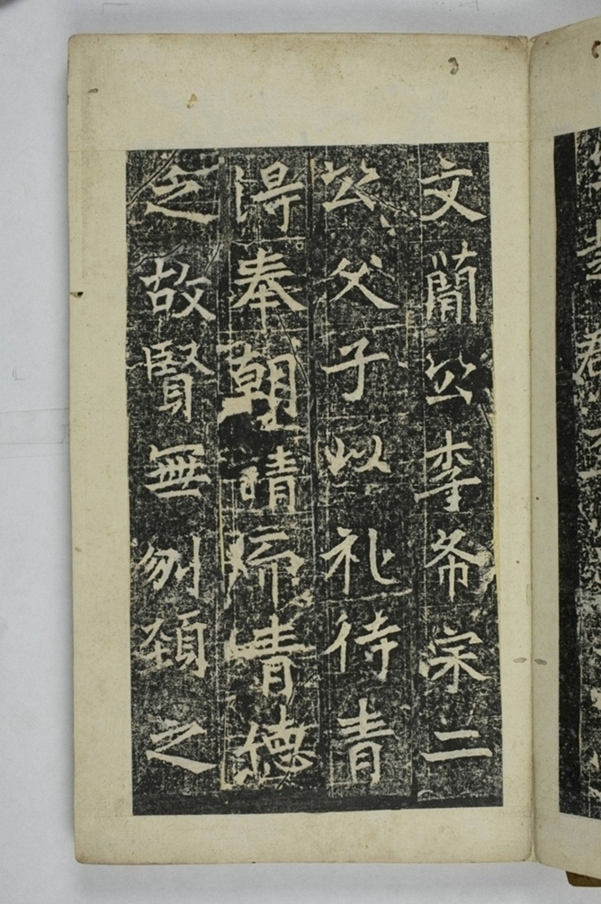 文簡公李希宗二
公父子以礼待青
得奉朝請帰青德
之故賢無刎頚之